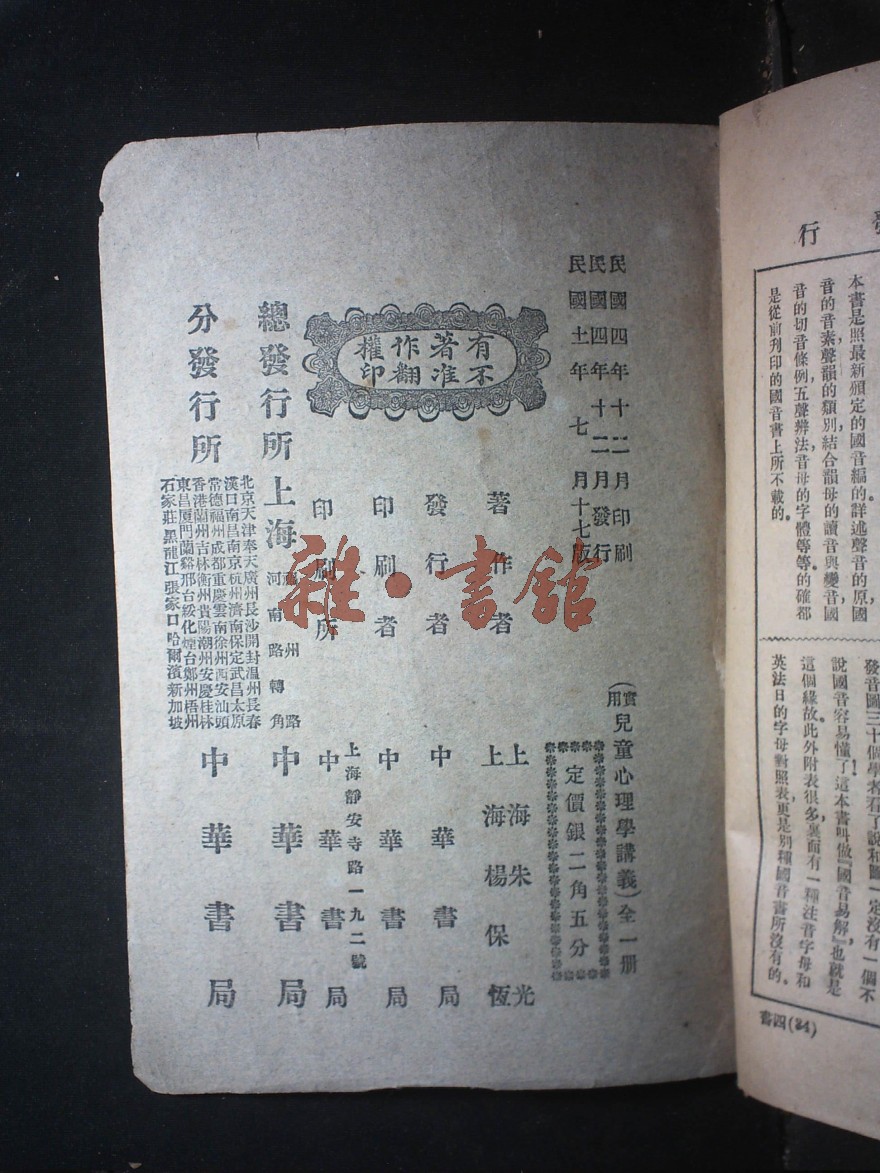 行
本書是照最新頒定的國音編的。詳述聲音的原國
音的音素聲韻的類別結合韻母的讀音與變音國
音的切音條例五聲辨法音母的字體等等。的確都
是從前刊印的國音書上所不載的。
發音圖三十個學者看了說和圖一定沒有一個不
說國音容易懂了!這本書叫做『國音易解』也就是
這個緣故。此外附表很多裏面有一種注音字母和
英法日的字母對照表更是別種國音書所沒有的。
書四(34)
民國四年十二月印刷
民國四年十二月發行
民國十一年七月十七版
(實用)兒童心理學講義)全一册
定價銀二角五分
有著作權
不准翻印
著作者
上海朱光
上海楊保恆
發行者 中華書局
印刷者 中華書局
印刷所
上海靜安寺路一九二號
中華書局
總發行所
上海
福州路
河南路轉角
中華書局
分發行所
北京天津奉天廣州長沙開封溫州長春
漢口南昌南京杭州濟南保定武昌太原
常德福州成都重慶雲南徐州西安汕頭
香港蘭州吉林衡州貴陽潮州安慶桂林
東昌廈門蘭谿邢台綏化煙台鄭州梧州
石家莊黑龍江張家口哈爾濱新加坡
中華書局
雜·書館